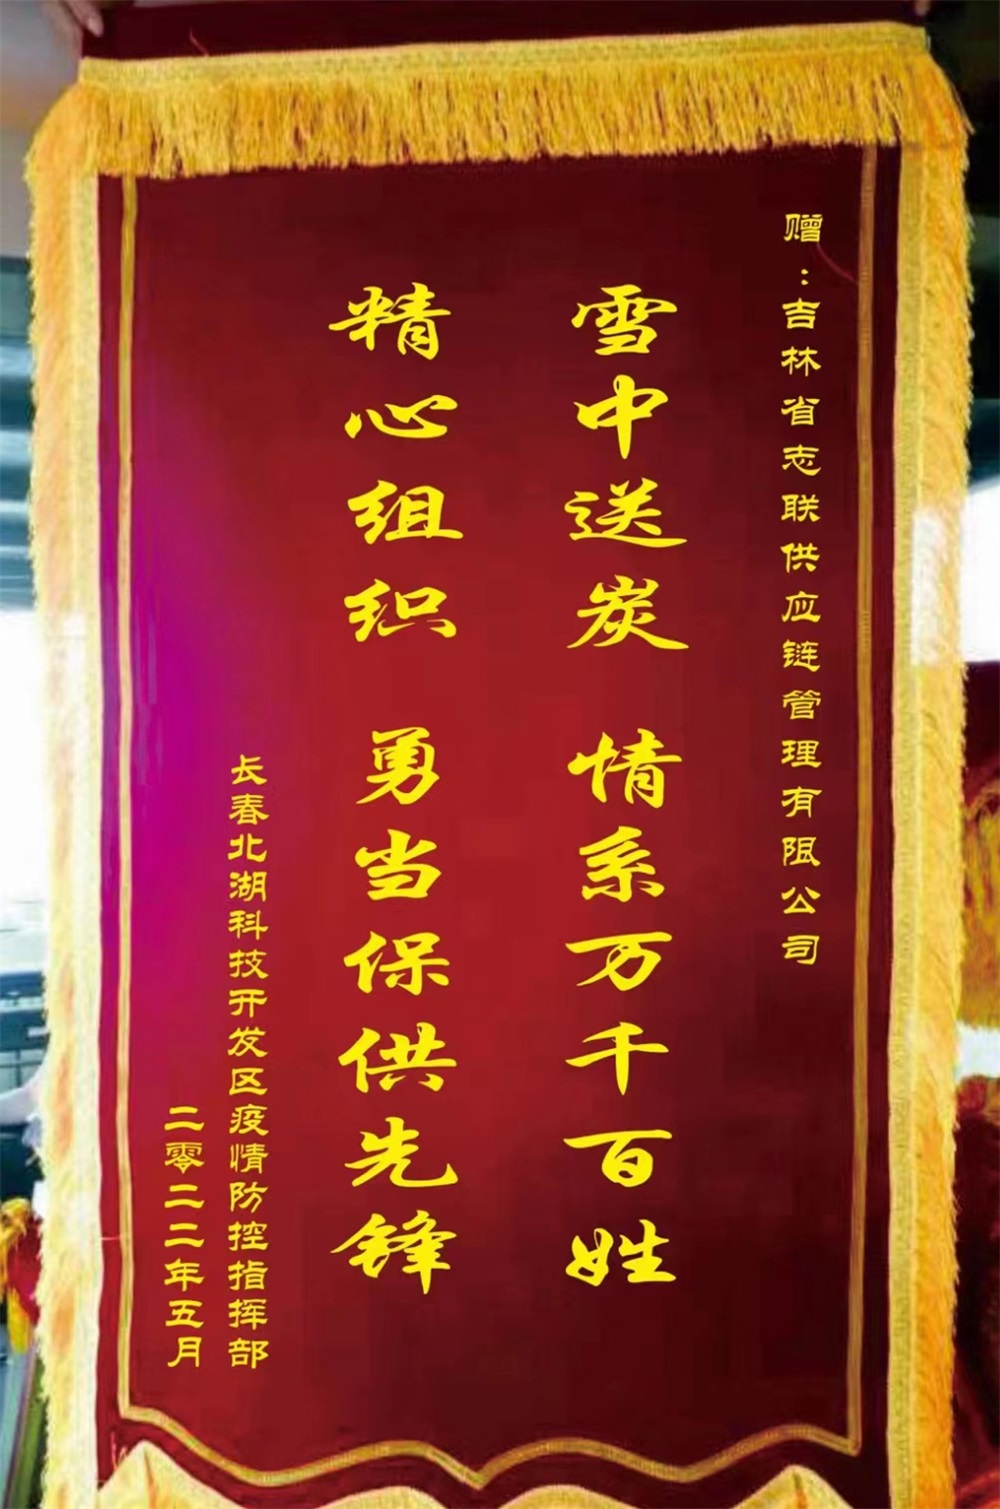 赠：吉林省志联供应链管理有限公司
雪中送炭 情系万千百姓
精心组织 勇当保供先锋
长春北湖科技开发区疫情防控指挥部
二零二二年五月